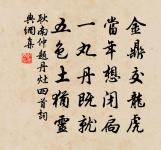 金鼎交龍虎
當年想閉扃
一丸丹既就
五色土猶靈
耿南仲題丹灶四首詞
與網集